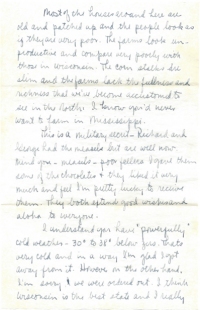 Most of the houses around here are
old and patched up and the people look as
if they are very poor. The farms look un-
productive and compare very poorly with
those in Wisconsin. The corn stalks are
slim and the farms lack the fullness and
richness that we've become accustomed to
see in the North. I know you'd never
want to farm in Mississippi.
This is a military secret - Richard and
George had the measles but are well now
mind you - measles - poor fellers. I gave them
some of the chocolates & they liked it very
much and feel I'm pretty lucky to receive
them. They both extend good wishes and
aloha to everyone.
I understand you have "powerfully"
cold weather - 30° to 38° below zero. That's
very cold and in a way I'm glad I got
away from it. However on the other hand,
I'm sorry we were ordered out. I think
Wisconsin is the best state and I really